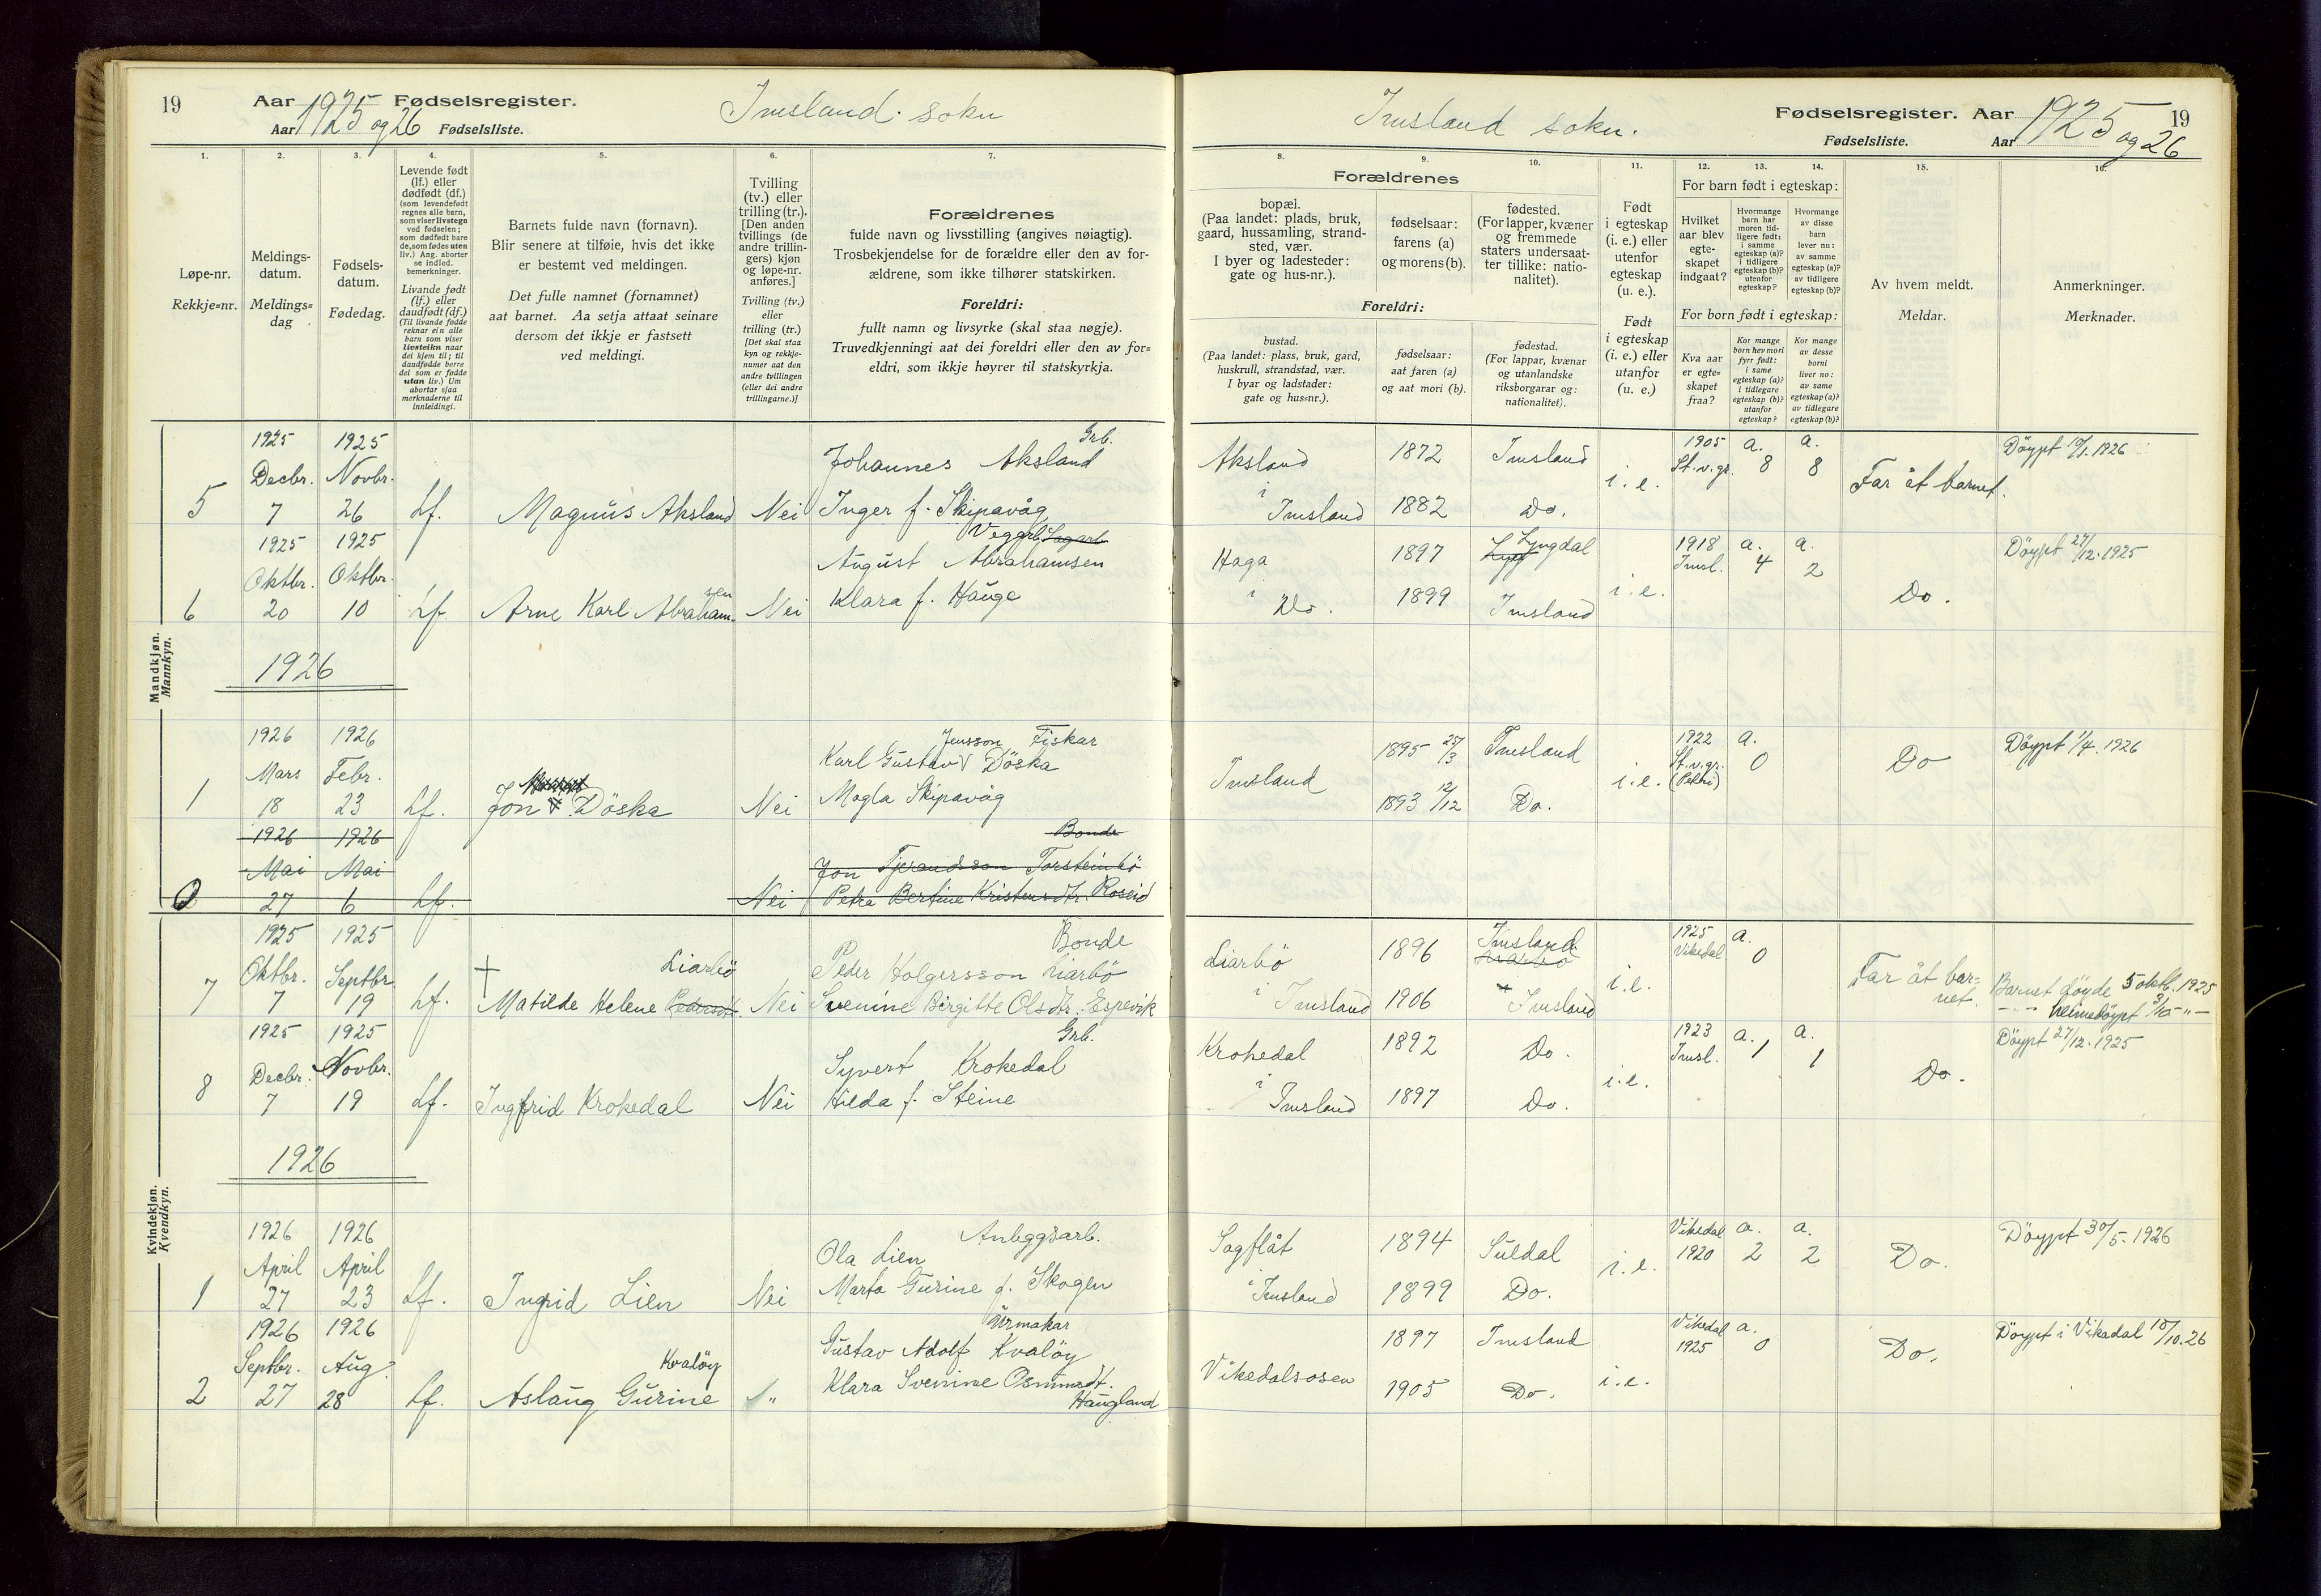 19 Aar 1925 og 26 Fødselsregister. Imsland sokn
Aar Fødselsliste.
1. 2. 3. 4. 5. 6. 7.
Løpe-nr.
Rekkje=nr.
Meldings-
datum.
Meldings=
dag
Fødsels-
datum.
Fødedag.
Levende født
(lf.) eller
dødfødt (df.)
(som levendefødt
regnes alle barn,
som viser livstegn
ved fødselen;
som dødfødt bare
de, som fødes uten
liv.) Ang. aborter
se indled.
bemerkninger.
Livande født
(lf.) eller
daudfødt (df.)
(Til livande fødde
reknar ein alle
barn som viser
livsteikn naar
dei kjem til; til
daudfødde berre
dei som er fødde
utan liv.) Um
abortar sjaa
merknaderne til
innleidingi.
Barnets fulde navn (fornavn).
Blir senere at tilføie, hvis det ikke
er bestemt ved meldingen.
Det fulle namnet (fornamnet)
aat barnet. Aa setja attaat seinare
dersom det ikkje er fastsett
ved meldingi.
Tvilling
(tv.) eller
trilling (tr.).
[Den anden
tvillings (de
andre trillin-
gers) kjøn
og løpe-nr.
anføres.]
Tvilling (tv.)
eller
trilling (tr.)
[Det skal staa
kyn og rekkje-
numer aat den
andre tvillingen
(eller dei andre
trillingarne.)]
Forældrenes
fulde navn og livsstilling (angives nøiagtig).
Trosbekjendelse for de forældre eller den av for-
ældrene, som ikke tilhører statskirken.
Foreldri:
fullt namn og livsyrke (skal staa nøgje).
Truvedkjenningi aat dei foreldri eller den av for=
eldri, som ikkje høyrer til statskyrkja.
Mandkjøn.
Mannkyn.
1925 1925 Grb.
Decbr. Novbr. Johannes Aksland
5 7 26 Lf. Magnus Aksland Nei Inger f. Skipavåg
1925 1925 Vegarb. Sagarb
Oktbr. Oktbr. August Abrahamsen
6 20 10 Lf. Arne Karl Abraham-sen Nei Klara f. Hauge
1926
1926 1926 Jensson Fiskar
Mars Febr. Karl Gustav Döska
1 18 23 Lf. Jon Döska Nei Magla Skipavåg
1926 1926 Bonde
Mai Mai Jon Tjerandsson Torsteinbö
2 27 6 Lf. Nei Petra Bertine Kristensdtr. Roseid
Kvindekjøn.
Kvendkyn.
1925 1925 Bonde
Oktbr. Septbr. Liarbö Peder Holgersson Liarbö
7 7 19 Lf. Matilde Helene Pedersdtr. Nei Svenine Birgitte Olsdtr. Espevik
1925 1925 Grb.
Decbr. Novbr. Syvert Krokedal
8 7 19 Lf. Ingfrid Krokedal Nei Hilda f. Steine
1926
1926 1926 Anleggsarb.
April April Ola Lien
1 27 23 Lf. Ingrid Lien Nei Marta Gurine f. Skogen
1926 1926 Urmakar
Septbr. Aug. Kvalöy Gustav Adolf Kvalöy
2 27 28 Lf. Aslaug Gurine " Klara Svenine Osmundt.
Haugland
Imsland sokn. Fødselsregister. Aar 1925 og 26 19
Fødselsliste. Aar
8. 9. 10. 11. 12. 13. 14. 15. 16.
Forældrenes
bopæl.
(Paa landet: plads, bruk,
gaard, hussamling, strand-
sted, vær.
I byer og ladesteder:
gate og hus-nr.).
fødselsaar:
farens (a)
og morens (b).
fødested.
(For lapper, kvæner
og fremmede
staters undersaat-
ter tillike: natio-
nalitet).
Foreldri:
bustad.
(Paa landet: plass, bruk, gard,
huskrull, strandstad, vær.
I byar og ladstader:
gate og hus=nr.).
fødselsaar:
aat faren (a)
og aat mori (b).
fødestad.
(For lappar, kvænar
og utanlandske
riksborgarar og:
nationalitet).
Født
i egteskap
(i. e.) eller
utenfor
egteskap
(u. e.).
Født
i egteskap
(i. e.) eller
utanfor
(u. e.)
For barn født i egteskap:
Hvilket
aar blev
egte-
skapet
indgaat?
Hvormange
barn har
moren tid-
ligere født:
i samme
egteskap (a)?
i tidligere
egteskap (b)?
utenfor
egteskap?
Hvormange
av disse
barn
lever nu:
av samme
egteskap (a)?
av tidligere
egteskap (b)?
For born født i egteskap:
Kva aar
er egte=
skapet
fraa?
Kor mange
born hev mori
fyrr født:
i same
egteskap (a)?
i tidlegare
egteskap (b)?
utanfor
egteskap?
Kor mange
av desse
borni
liver no:
av same
egteskap (a)?
av tidlegare
egteskap (b)?
Av hvem meldt.
Meldar.
Anmerkninger.
Merknader.
Aksland 1872 Imsland 1905 a. a. Döypt 10/1. 1926
i i. e. St. v. gr. 8 8 Far åt barnet.
Imsland 1882 Do.
Haga 1897 Lyngdal 1918 a. a. Döypt 27/12. 1925
i i. e. Imsl. 4 2 Do.
Do. 1899 Imsland
1895 25/3 Imsland 1922 a. Döypt 1/4. 1926
Imsland i. e. St. v. gr. 0 Do
1893 12/12 Do.
Liarbö 1896 Imsland 1925 a.
Vikedal 0 Far åt bar-
i Imsland 1906 Imsland i. e. net. Barnet döyde 5 oktb. 1925
heimedöypt 3/10 - " -
Krokedal 1892 Do. 1923 a. a. Döypt 27/12. 1925
i i. e. Imsl. 1 1 Do.
Imsland 1897 Do.
Sagflåt 1894 Suldal Vikedal a. a. Döypt 30/5. 1926
i. e. 1920 2 2 Do.
i Imsland 1899 Do.
1897 Imsland Vikedal a. Döypt i Vikadal 10/10. 26
Vikedalsosen i. e. 1925 0 Do.
1905 Do.